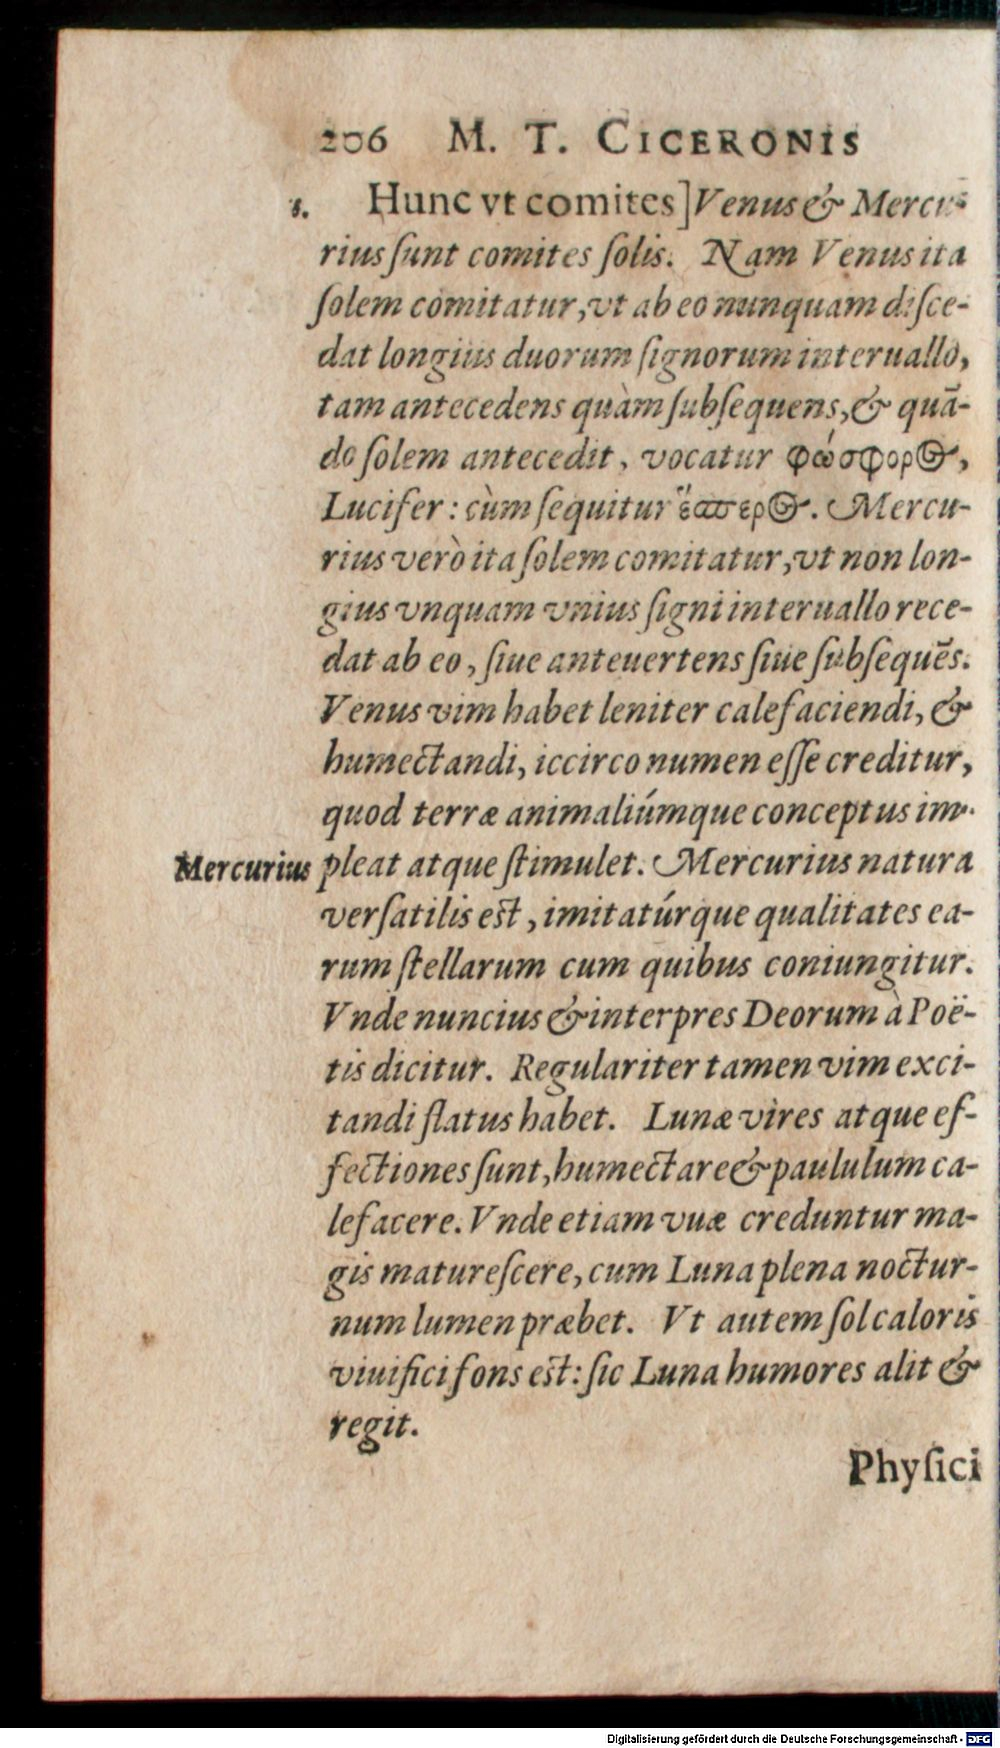 206 M. T. CICERONIS
s. Hunc vt comites] Venus & Mercu-
rius ſunt comites ſolis. Nam Venus ita
ſolem comitatur, vt ab eo nunquam diſce-
dat longius duorum ſignorum interuallo,
tam antecedens quàm ſubſequens, & quā-
do ſolem antecedit, vocatur φώσφορος,
Lucifer: cùm ſequitur ἕσπερος. Mercu-
rius verò ita ſolem comitatur, vt non lon-
gius vnquam vnius ſigni interuallo rece-
dat ab eo, ſiue anteuertens ſiue ſubſequēs.
Venus vim habet leniter calefaciendi, &
humectandi, iccirco numen eſſe creditur,
quod terræ animaliúmque conceptus im-
Mercurius pleat atque ſtimulet. Mercurius natura
verſatilis eſt, imitatúrque qualitates ea-
rum ſtellarum cum quibus coniungitur.
Vnde nuncius & interpres Deorum à Poë-
tis dicitur. Regulariter tamen vim exci-
tandi flatus habet. Lunæ vires atque ef-
fectiones ſunt, humectare & paululum ca-
lefacere. Vnde etiam vuæ creduntur ma-
gis matureſcere, cum Luna plena noctur-
num lumen præbet. Vt autem ſol caloris
viuifici fons eſt: ſic Luna humores alit &
regit.
Phyſici
Digitalisierung gefördert durch die Deutsche Forschungsgemeinschaft - DFG